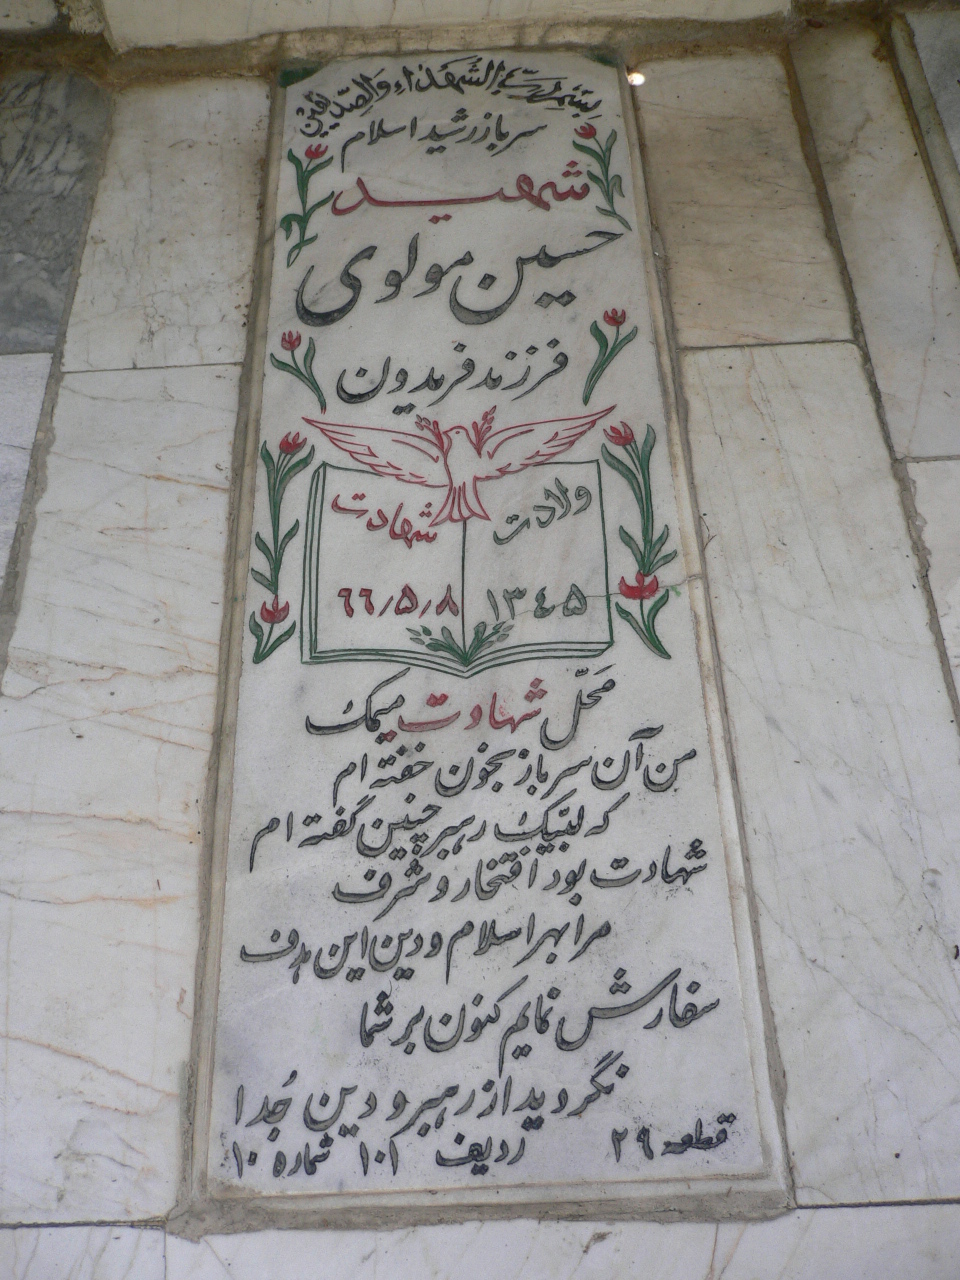 بسم رب الشهداء والصدیقین
سرباز رشید اسلام
شهید
حسین مولوی
فرزند فریدون
ولادت شهادت
۱۳٤۵ ۶۶/۵/۸
محل شهادت میمک
من آن سرباز بخون خفته ام
که لبیک رهبر چنین گفته ام
شهادت بود افتخار و شرف
مرا بهر اسلام و دین این هدف
سفارش نمایم کنون بر شما
نگردید از رهبر و دین جُدا
قطعه ۲۹ ردیف ۱۰۱ شماره ۱۰